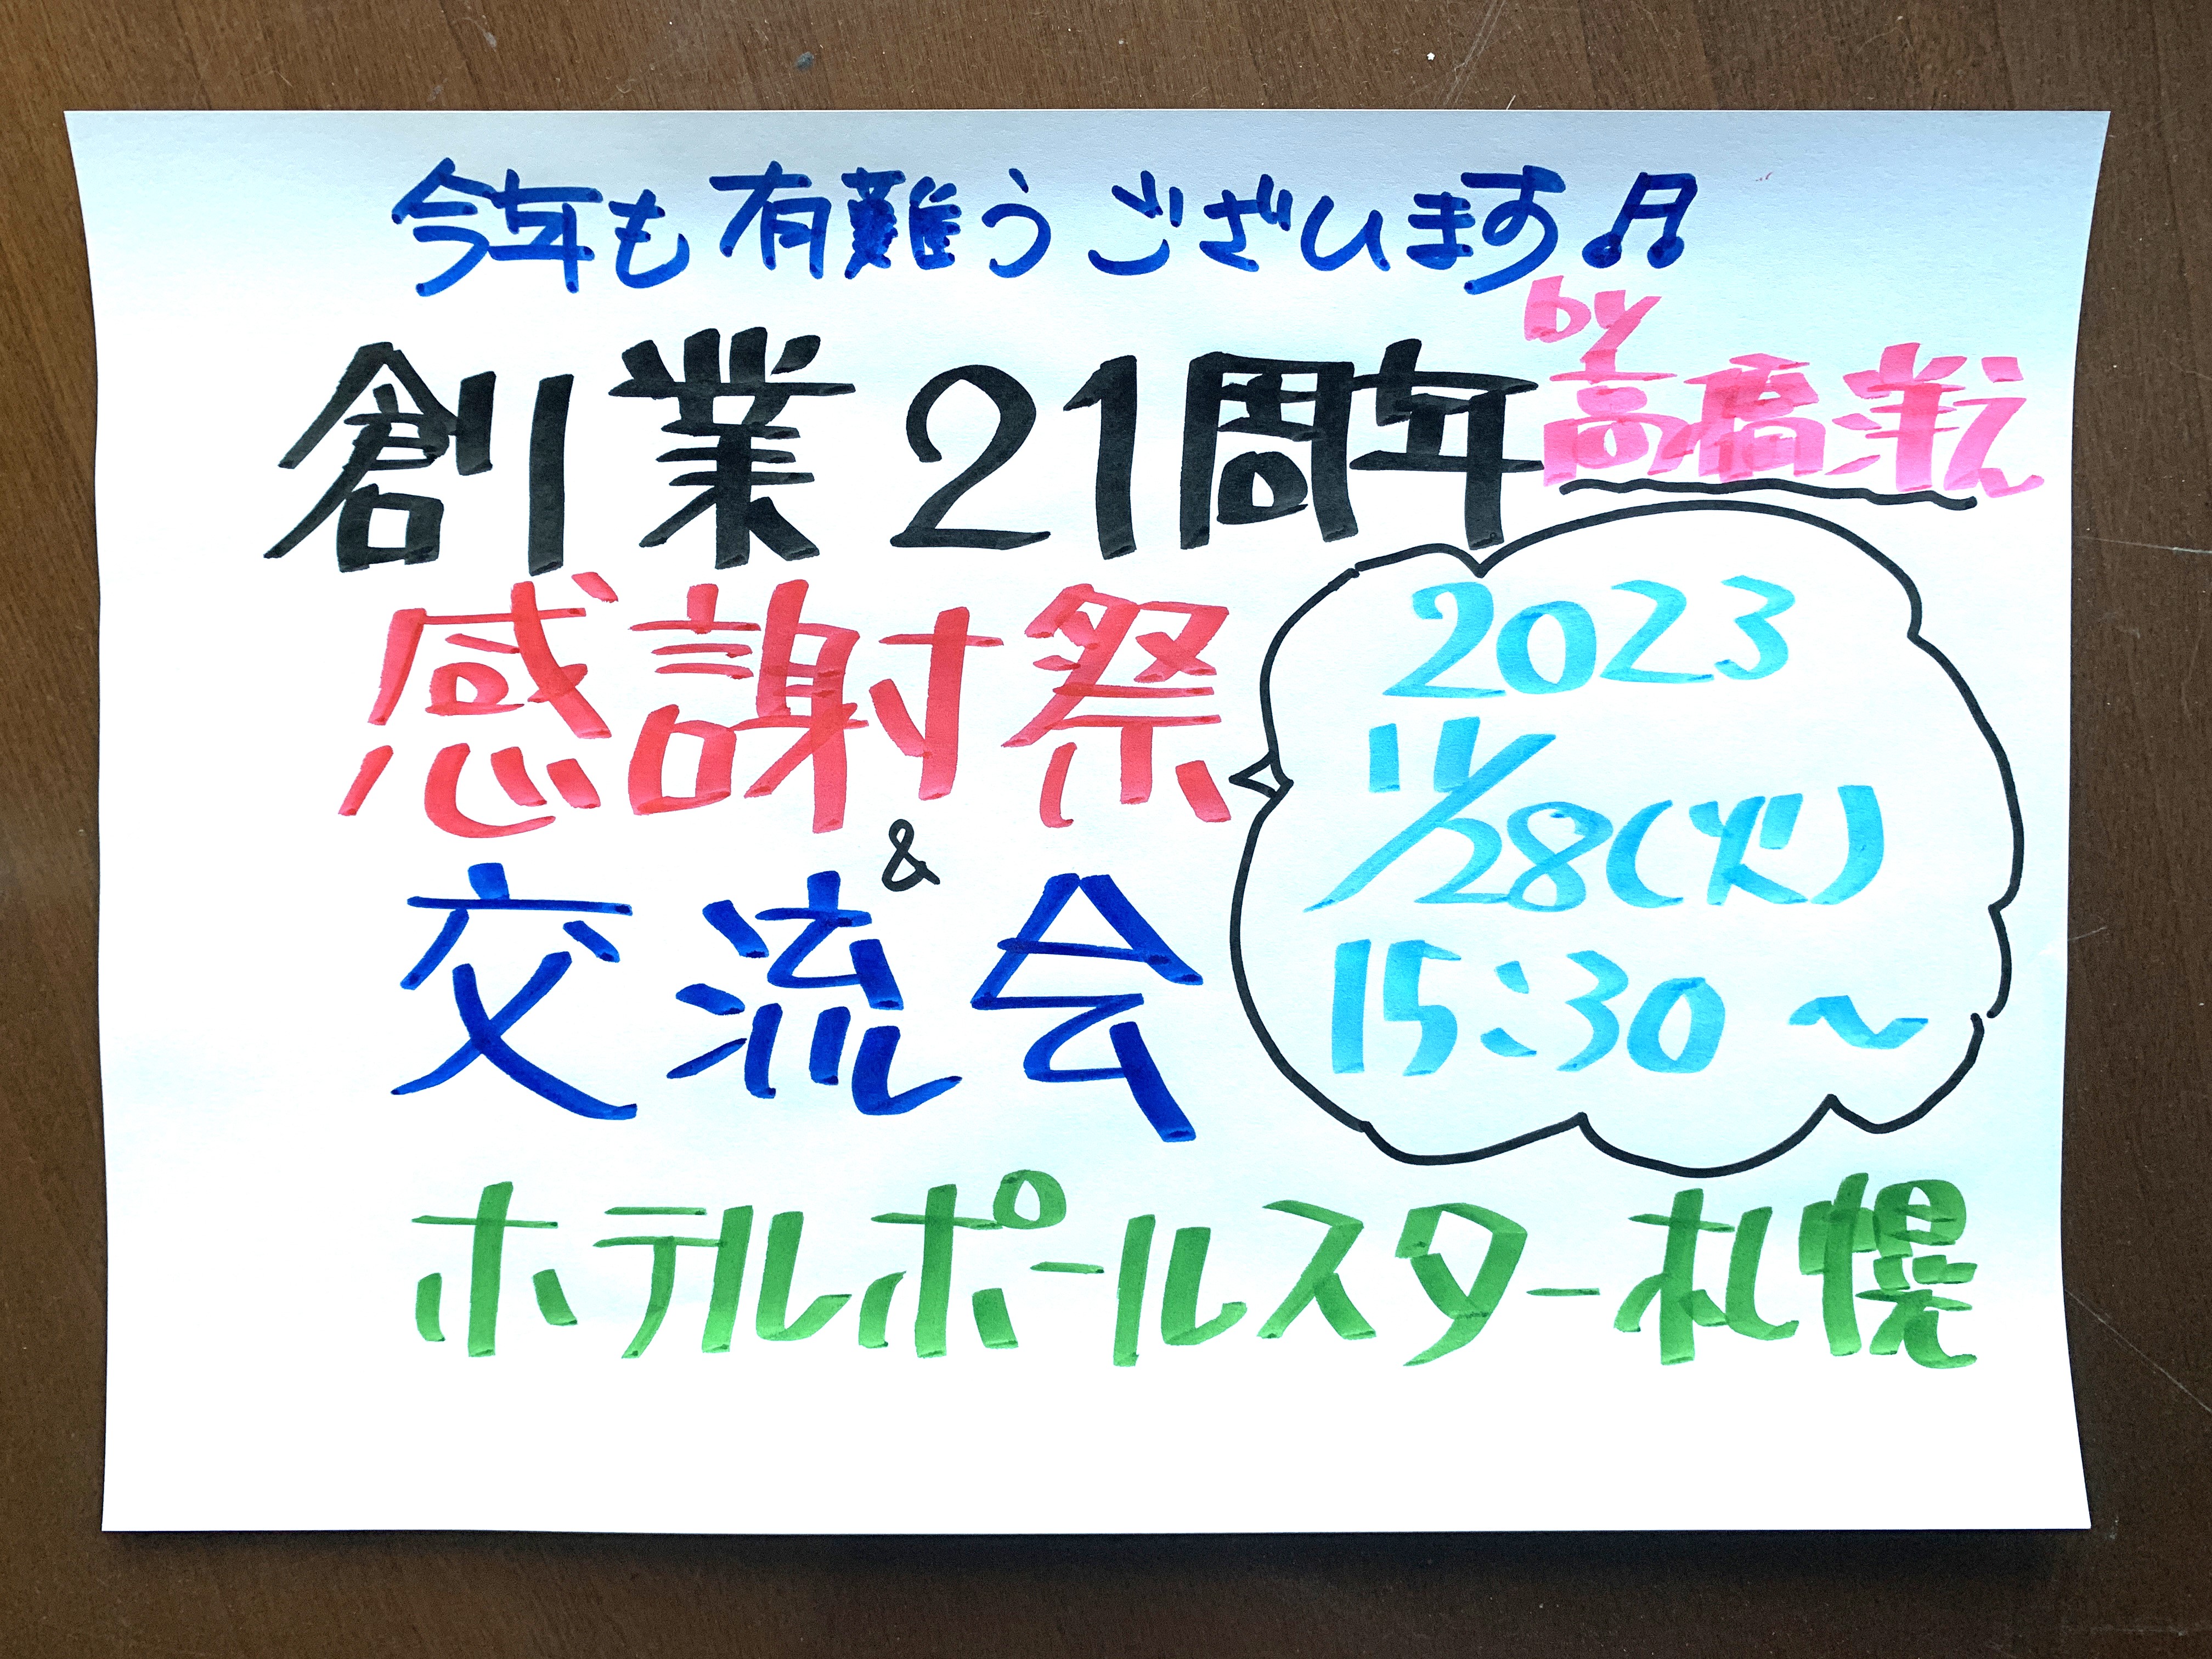 今年も有難うございます♫
by
高橋洋之
創業21周年
感謝祭
&
交流会
2023
11/28(火)
15:30~
ホテルポールスター札幌